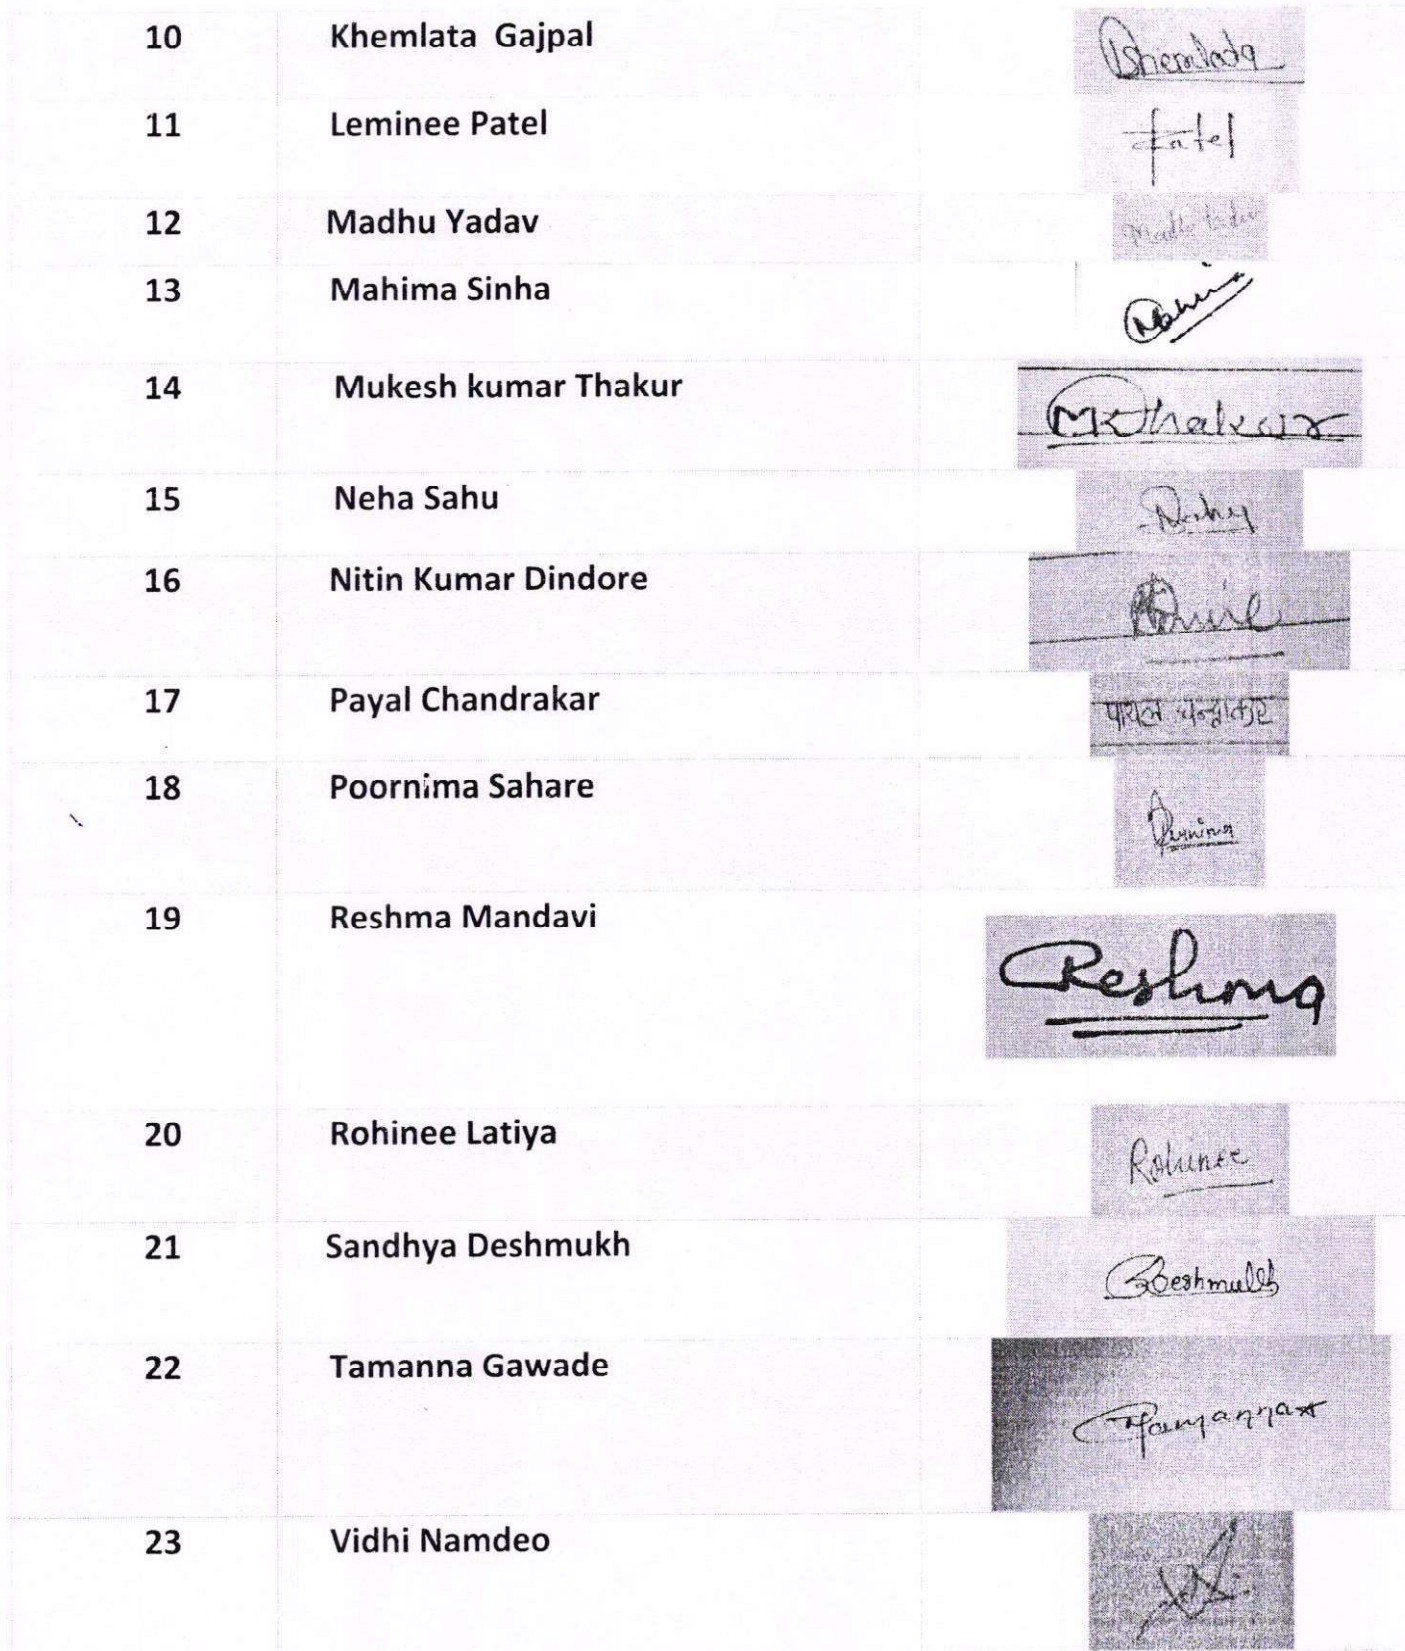 10 Khemlata Gajpal Khemlata
11 Leminee Patel Patel
12 Madhu Yadav Madhu Yadav
13 Mahima Sinha Mahima
14 Mukesh kumar Thakur MKThakur
15 Neha Sahu
16 Nitin Kumar Dindore
17 Payal Chandrakar पायल चन्द्राकर
18 Poornima Sahare Purnima
19 Reshma Mandavi Reshma
20 Rohinee Latiya Rohinee
21 Sandhya Deshmukh SDeshmukh
22 Tamanna Gawade Tamanna
23 Vidhi Namdeo